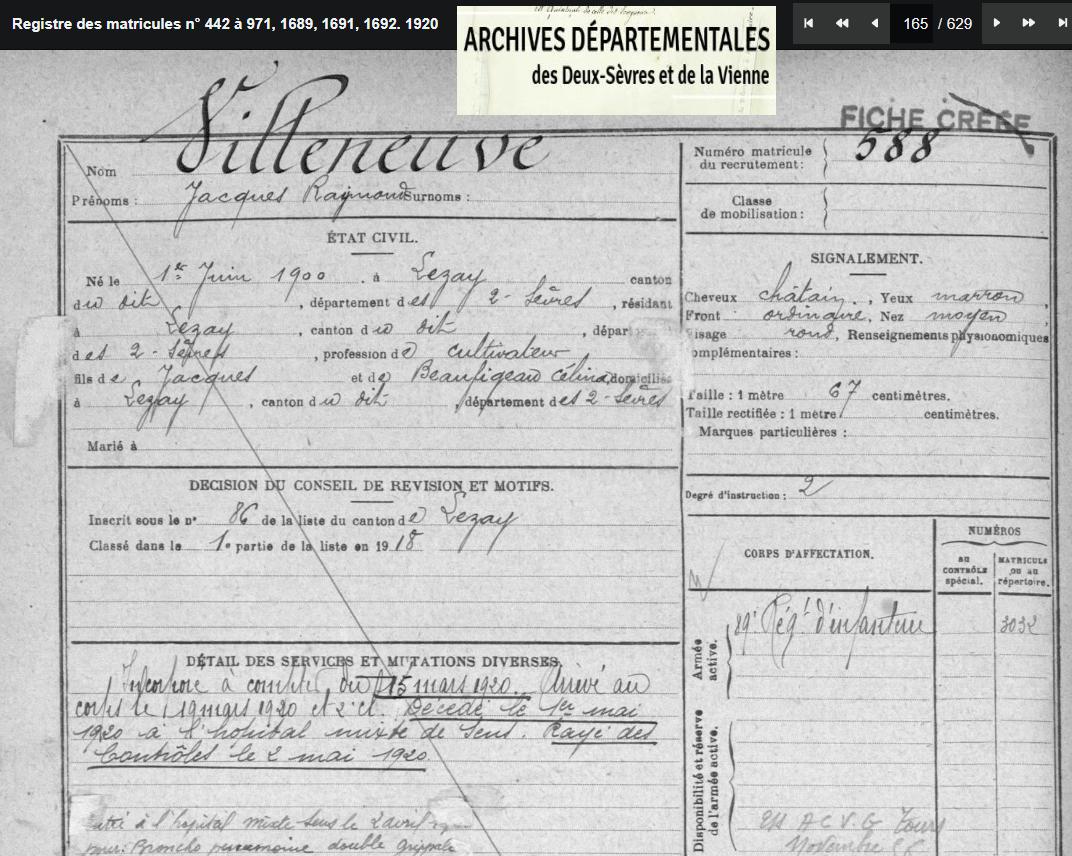 Registre des matricules n° 442 à 971, 1689, 1691, 1692. 1920
165 / 629
ARCHIVES DÉPARTEMENTALES
des Deux-Sèvres et de la Vienne
FICHE CRÉÉE
Nom Villeneuve
Prénoms : Jacques Raymond Surnoms :
ÉTAT CIVIL.
Né le 1er Juin 1900 à Lezay canton
du dit, département des 2-Sèvres, résidant
à Lezay, canton du dit, dépar
des 2-Sèvres, profession de cultivateur
fils de Jacques et de Beaufigeau Célina, domiciliés
à Lezay, canton du dit, département des 2-Sèvres
Marié à
DECISION DU CONSEIL DE REVISION ET MOTIFS.
Inscrit sous le n° 86 de la liste du canton de Lezay
Classé dans la 1e partie de la liste en 1918
DÉTAIL DES SERVICES ET MUTATIONS DIVERSES.
Incorporé à compter du 15 mars 1920. Arrivé au
corps le 19 mars 1920 et 2e cl. Décédé le 1er mai
1920 à l'hôpital mixte de Sens. Rayé des
Contrôles le 2 mai 1920.
à l'hopital mixte Sens le 2 avril
pour: Broncho pneumonie double grippale
Numéro matricule
du recrutement : 588
Classe
de mobilisation :
SIGNALEMENT.
Cheveux châtain, Yeux marron,
Front ordinaire, Nez moyen
Visage rond, Renseignements physionomiques
complémentaires :
Taille : 1 mètre 67 centimètres.
Taille rectifiée : 1 mètre centimètres.
Marques particulières :
Degré d'instruction : 2
CORPS D'AFFECTATION.
NUMÉROS
au
CONTRÔLE
spécial.
MATRICULE
ou au
répertoire.
Armée
active.
89e Régt d'infanterie 3032
Disponibilité et réserve
de l'armée active.
A C V G Tours
Novembre